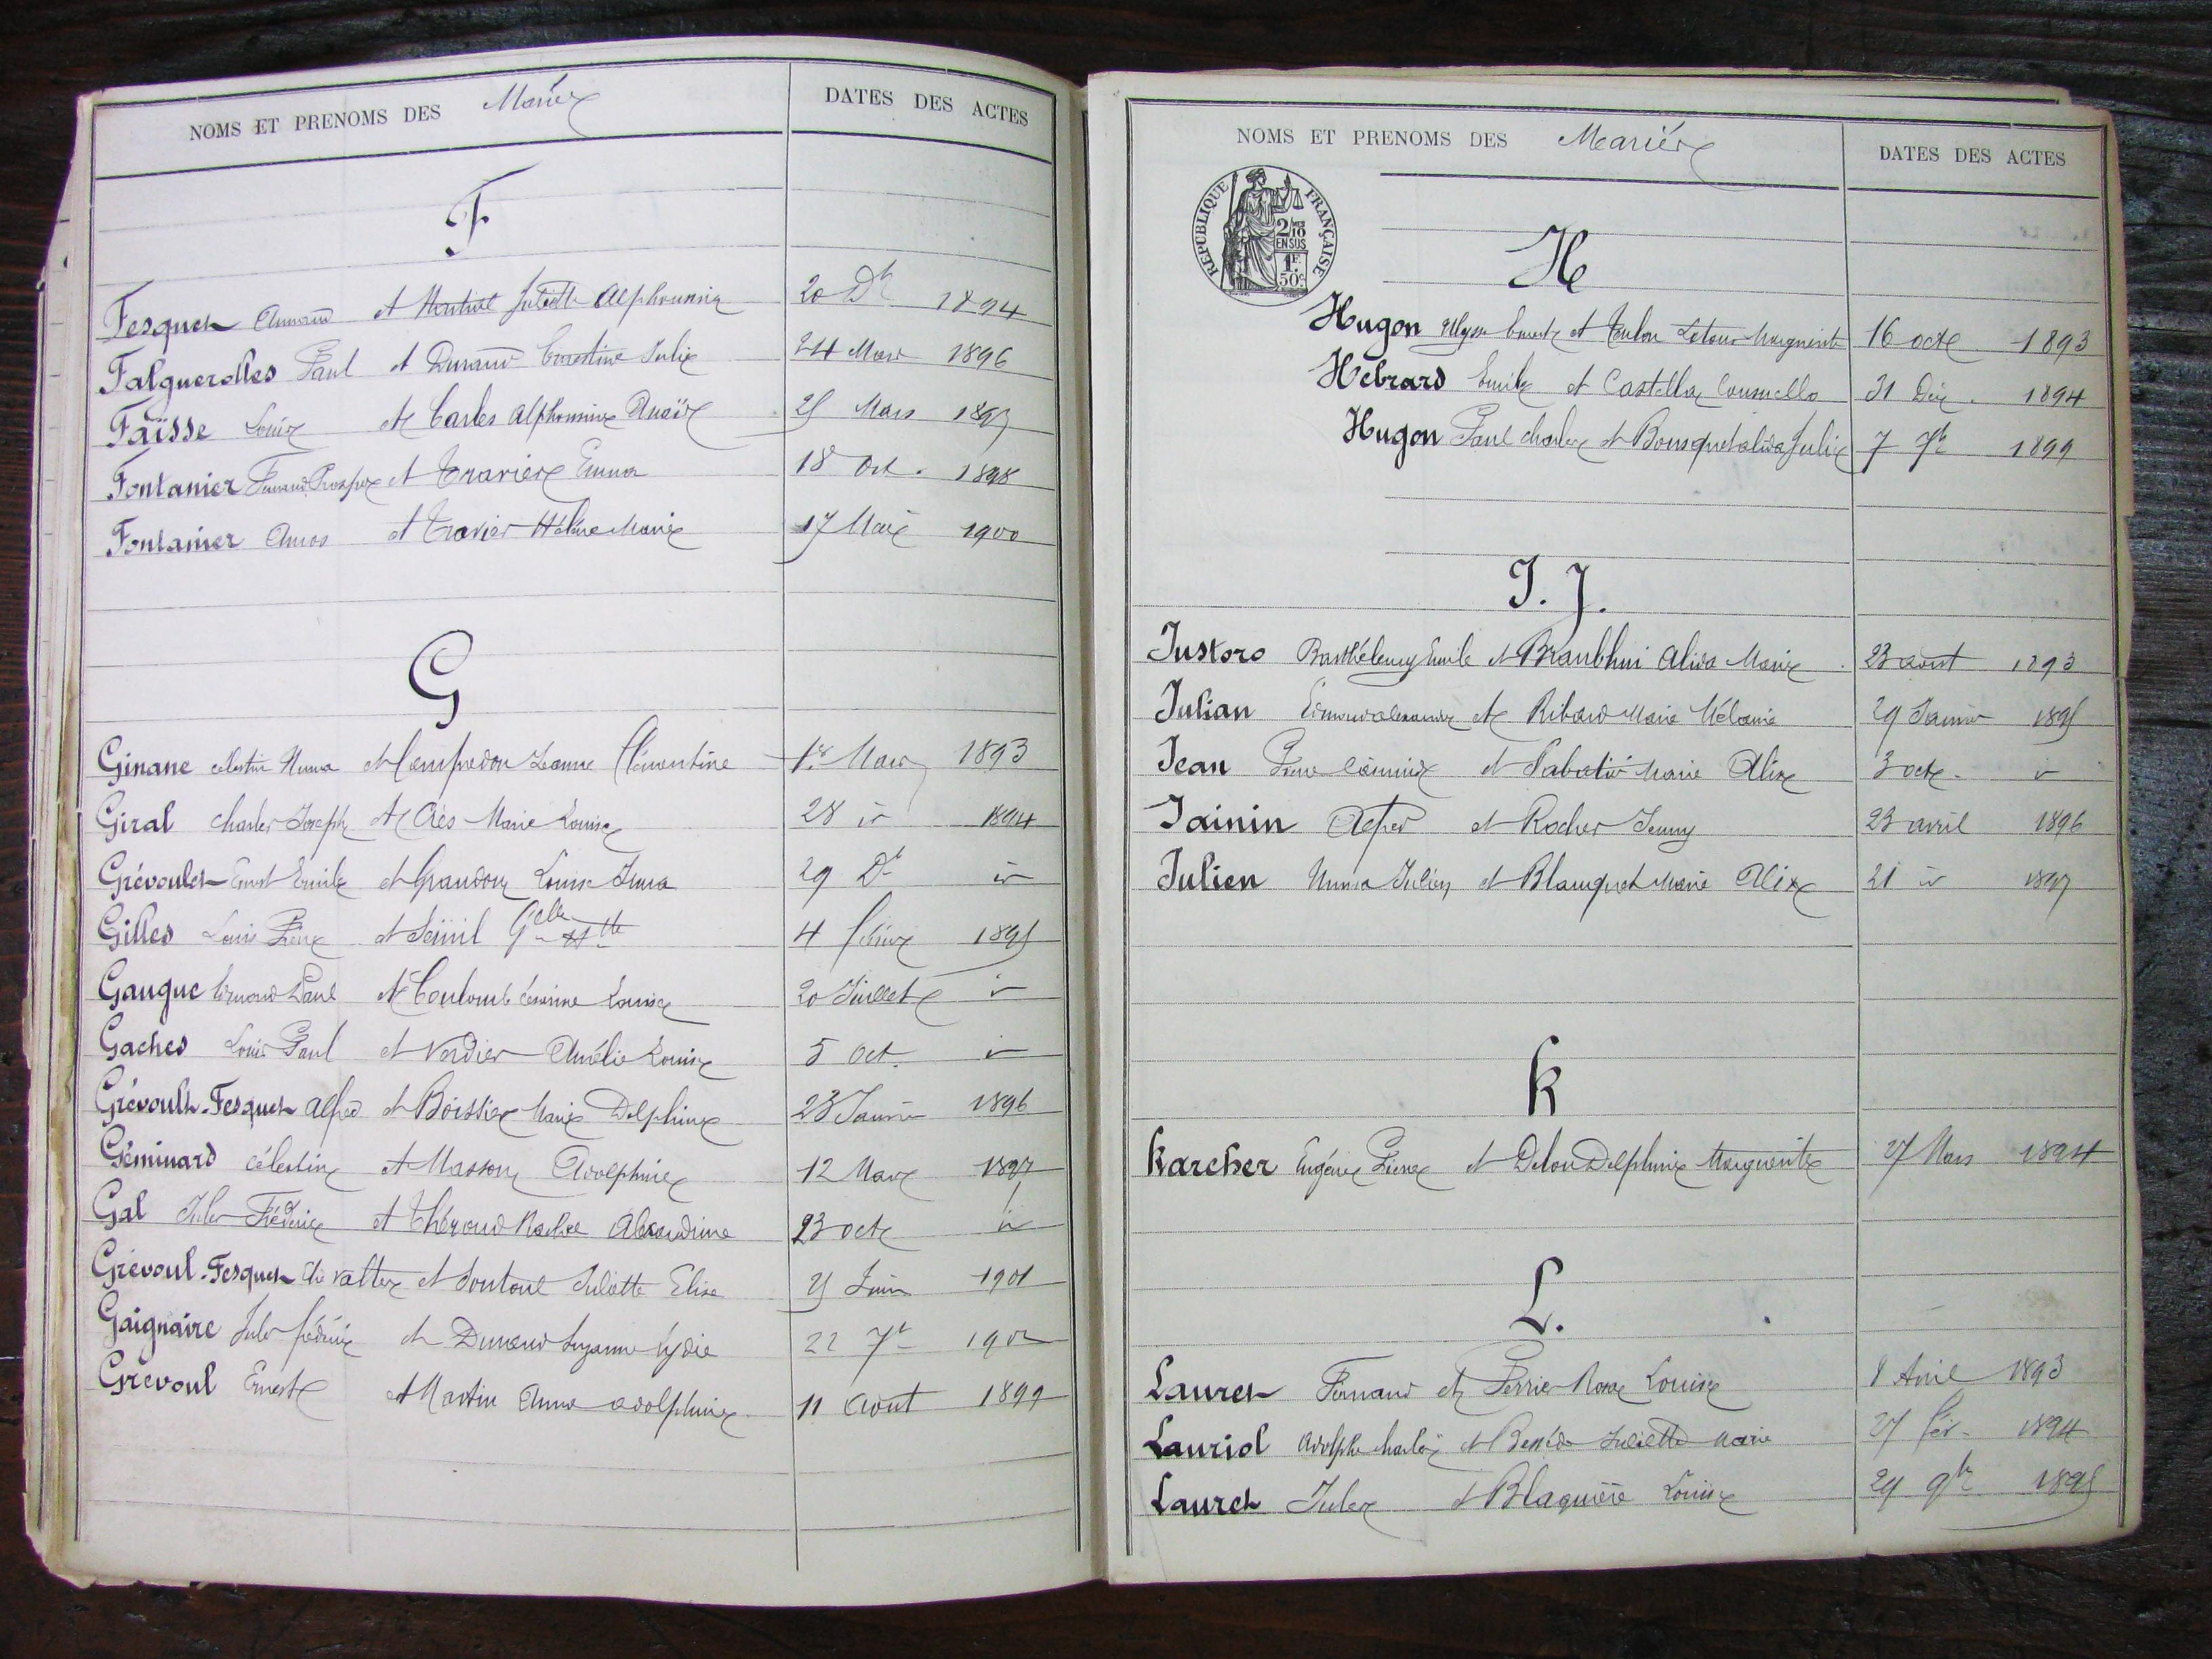 NOMS ET PRENOMS DES Mariés
DATES DES ACTES
F
Fesquet Armand et Martial Juliette Alphonsine 20 Dbre 1894
Falguerolles Paul et Durand Ernestine Julie 24 Mars 1896
Faïsse Louis et Carles Alphonsine Anaïs 25 Mars 1897
Fontanier Fernand Prosper et Travier Emma 18 Oct. 1898
Fontanier Amos et Travier Hélène Marie 17 Mai 1900
G
Ginane Célestin Numa et Campredon Jeanne Clémentine 1er Mars 1893
Giral Charles Joseph et Arès Marie Louise 28 id 1894
Grévoulet Ernest Emile et Graudon Louise Irma 29 Dbre id
Gilles Louis Pierre et 4 février 1895
Gaugue Edmond Paul et Coulomb Césarine Louise 20 Juillet id
Gaches Louis Paul et Verdier Amélie Louise 5 Oct. id
Grévoult-Fesquet Alfred et Boissier Marie Delphine 23 Janvier 1896
Géminard Célestin et Masson Adolphine 12 Mars 1897
Gal Jules Frédéric et Théraud Rachel Alexandrine 23 octe id
Grévoul-Fesquet Elie Valter et Soutoul Juliette Elise 25 Juin 1901
Gaignaire Jules frédéric et Durand Suzanne Lydie 22 7bre 1902
Grévoul Ernest et Martin Anna Adolphine 11 Aout 1899
NOMS ET PRENOMS DES Mariés
DATES DES ACTES
REPUBLIQUE FRANÇAISE
2/10
EN SUS
1F
50c
H
Hugon Ulysse Ernest et Toulon Marguerite 16 octe 1893
Hébrard Emile et Castella Consuello 31 Déc. 1894
Hugon Paul Charles et Bousquet Alida Julie 7 7bre 1899
I. J.
Justoro Barthélemy Emile et Alida Marie 23 aout 1893
Julian Edmond Alexandre et Ribard Marie Mélanie 29 Janvier 1895
Jean Pierre Casimir et Sabatier Marie Alix 3 octe. id
Jainin Alfred et Rocher Jenny 23 avril 1896
Julien Numa Julien et Blanquet Marie Alix 21 id 1897
K
Karcher Eugène Pierre et Delon Delphine Marguerite 27 Mars 1894
L.
Lauret Fernand et Perrier Rose Louise 8 Avril 1893
Lauriol Adolphe Charles et Bessède Juliette Marie 27 fév. 1894
Lauret Jules et Blaquière Louise 29 9bre 1895